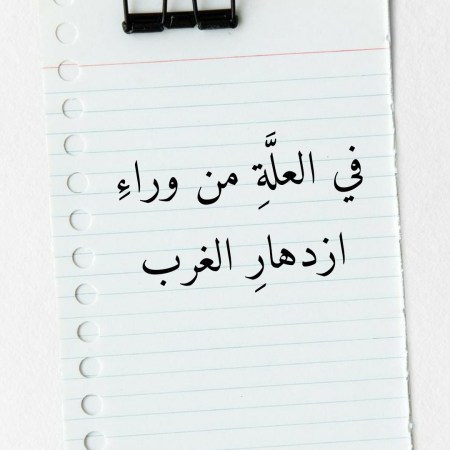 في العلَّةِ من وراءِ
ازدهارِ الغرب